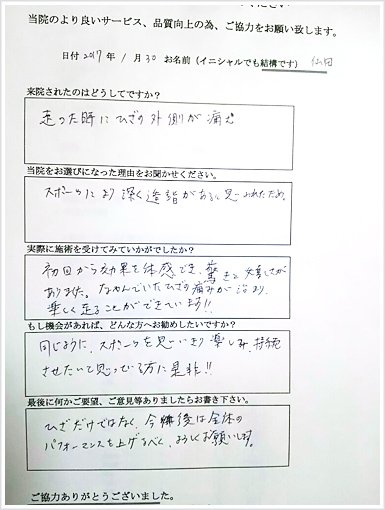 ください
当院のより良いサービス、品質向上の為、ご協力をお願い致します。
日付 2017 年 1 月 30 お名前（イニシャルでも結構です） 仏田
来院されたのはどうしてですか？
走った時にひざの外側が痛む
当院をお選びになった理由をお聞かせください。
スポーツにより深く造詣があると思われたため。
実際に施術を受けてみていかがでしたか？
初回から効果を体感でき、驚きと
ありました。なやんでいたひざの痛みが治まり、
楽しく走ることができています!!
もし機会があれば、どんな方へお勧めしたいですか？
同じように、スポーツを思いきり楽しみ、持続
させたいと思っている方に是非!!
最後に何かご要望、ご意見等ありましたらお書き下さい。
ひざだけではなく、今後は全体の
パフォーマンスを上げるべく、よろしくお願いします。
ご協力ありがとうございました。